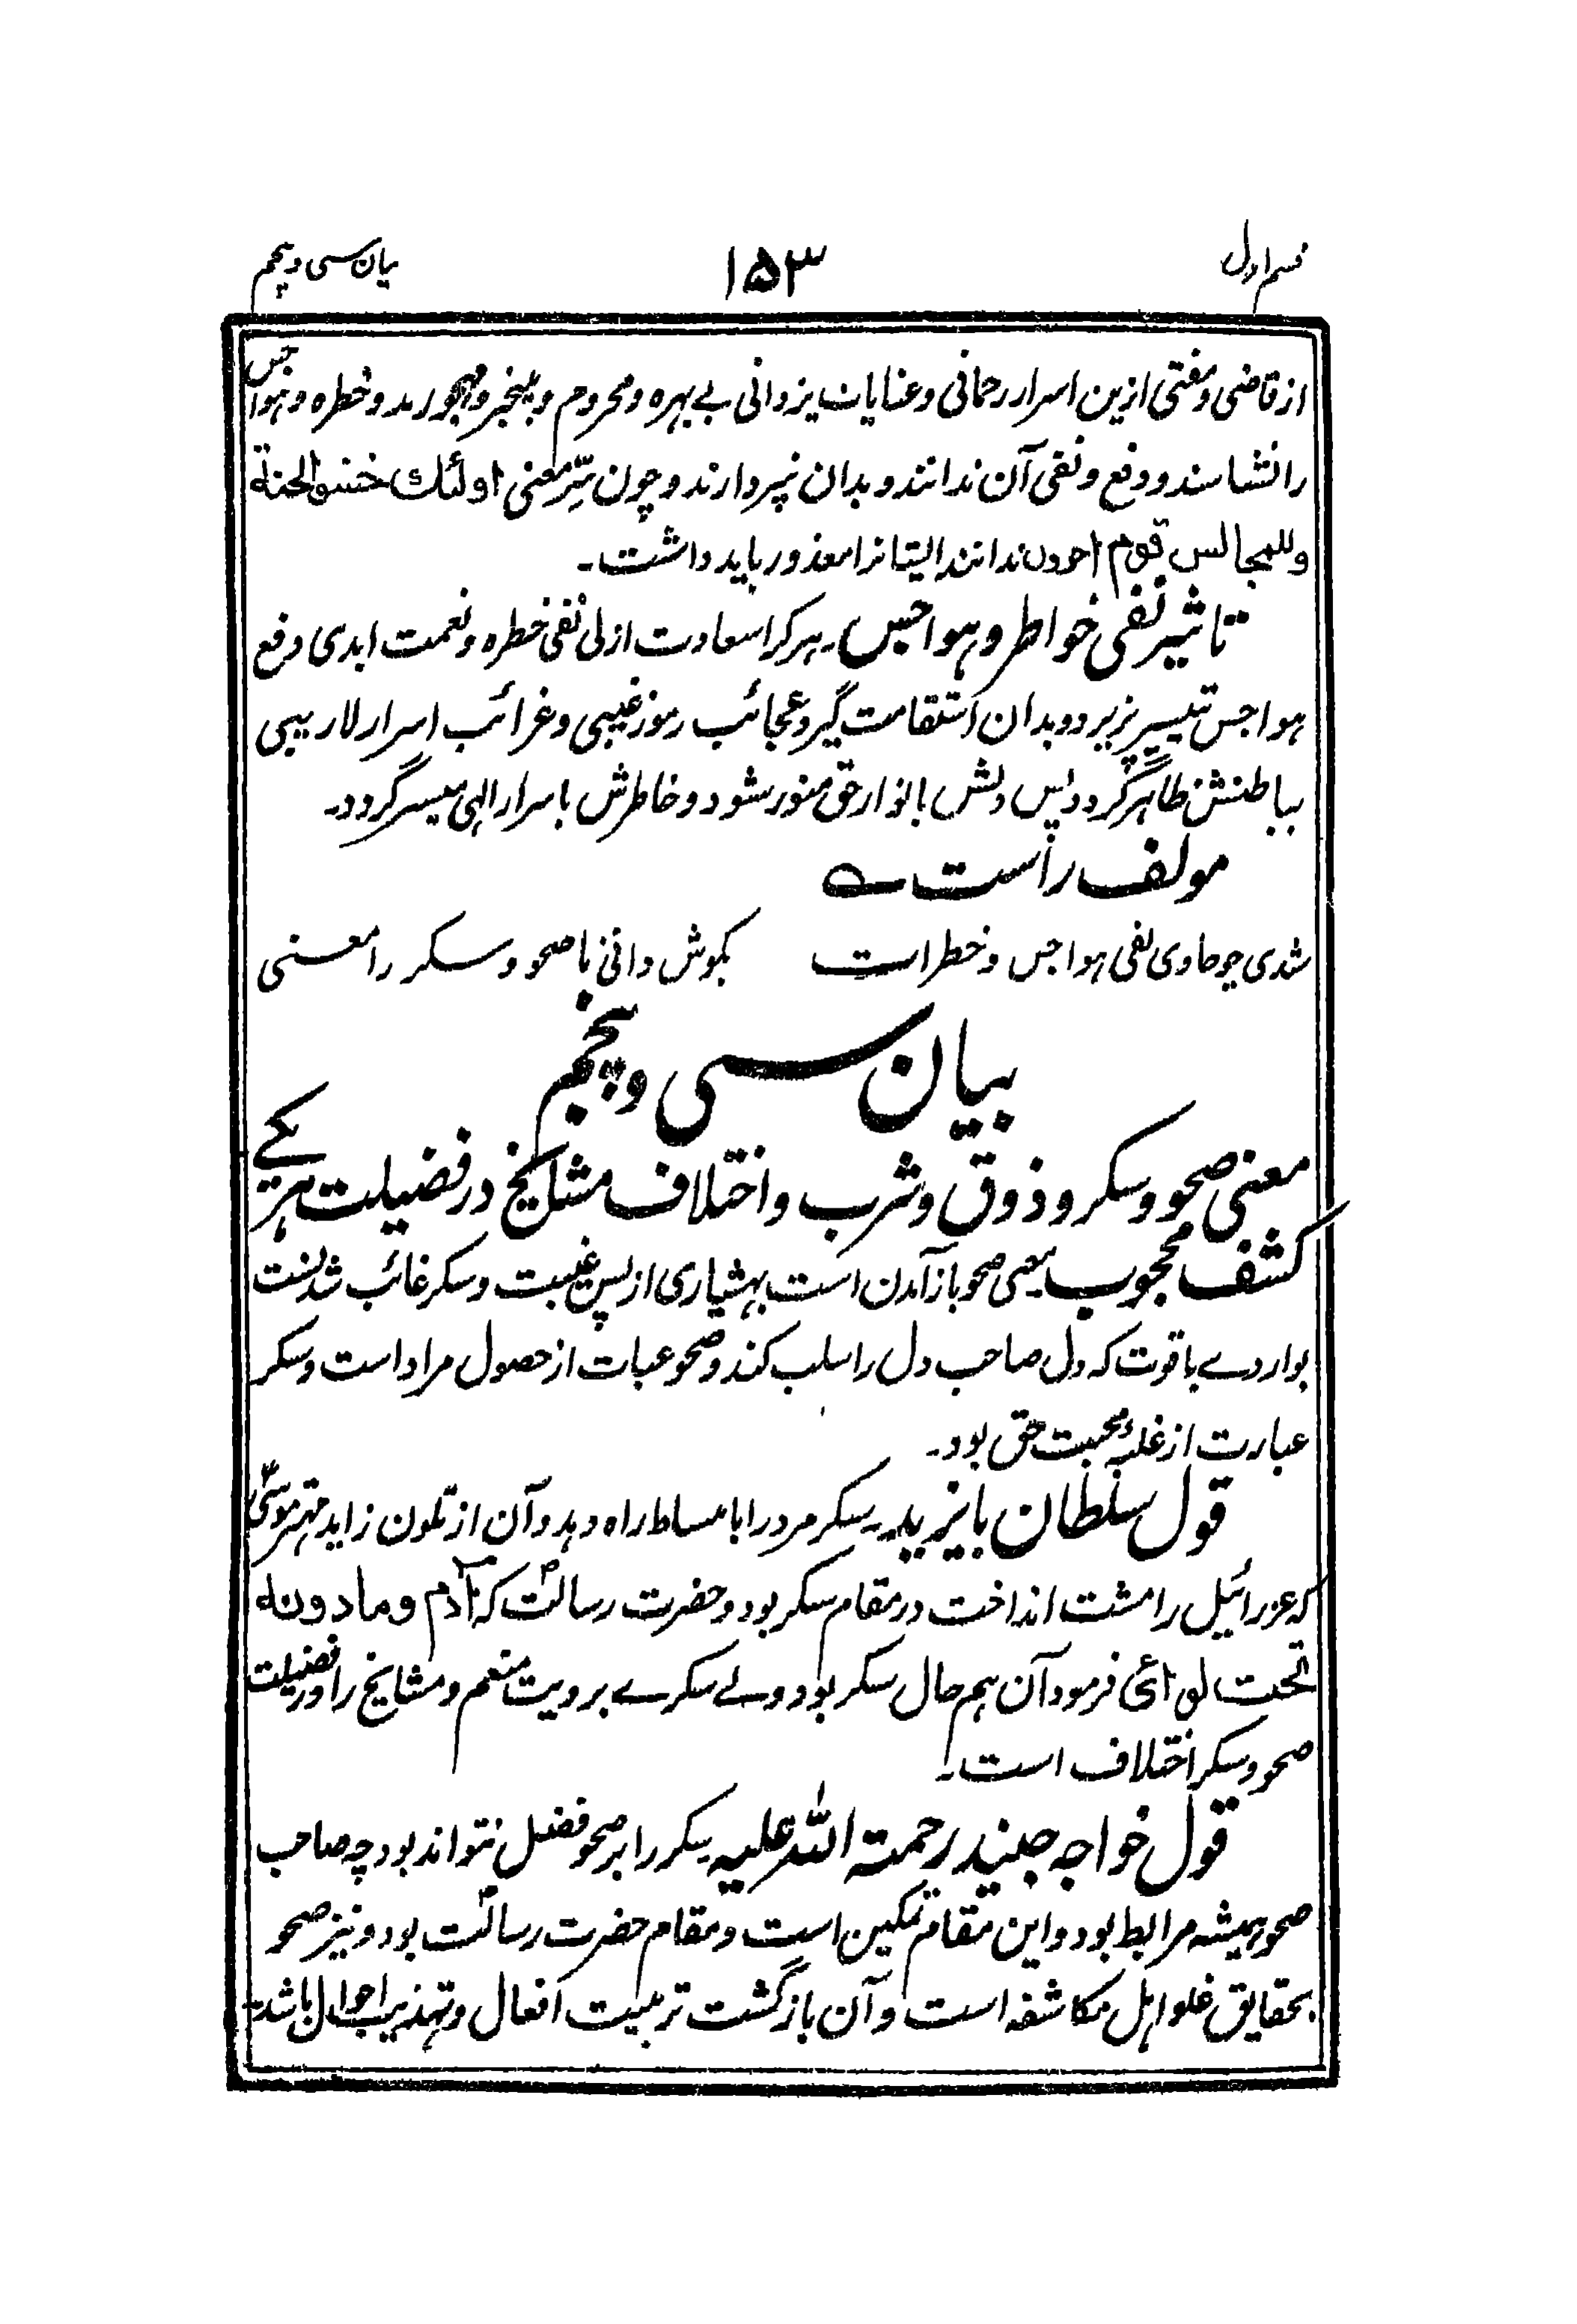 قسم اول ۱۵۳ بیان سی و پنجم
از قاضی و مفتی ازین اسرار رحمانی و عنایات یزدانی بے بہرہ و محروم و بیخبر و مہجورند و خطرہ و ہواجس
را نشناسند و دفع و نفی آن ندانند و بدان نپردارند و چون سِّر معنی اولئك
وللمجالس قوم اخرون ندانند ایشانرا معذور باید داشت۔
تاثیر نفی خواطر و ہواجس۔ ہر کرا سعادت ازلی نفی خطرہ و نعمت ابدی دفع
ہواجس تیسیر پزیرد و بدان استقامت گیرد عجائب رموز غیبی و غرائب اسرار لاریبی
بباطنش ظاہر گردد پس دلش بانوار حق منور شود و خاطرش باسرار الٰہی میسر گردد۔
مولف راست ؎
شدی چو حاوی نفی ہواجس و خطرات بکوش دانی با صحو و سکر را معنی
بیان سی و پنجم
معنی صحو و سکر و ذوق و شرب و اختلاف مشایخ در فضیلت ہر یکے
کشف محجوب یعنی صحو باز آمدن است بہشیاری از پس غیبت و سکر غائب شدنست
بواردے باقوت کہ دل صاحب دل را سلب کند و صحو عبات از حصول مراد است و سکر
عبارت از غلبۂ محبت حق بود۔
قول سلطان بایزید۔ سکر مرد را با مساط راہ دہد و آن از تلون زاید مہتر موسیٰؑ
کہ عزرائیل را مشت انداخت در مقام سکر بود و حضرت رسالتؐ کہ آدم و مادونہ
تحت لوائی فرمود آن ہم حال سکر بود ولے سکرے برویت منعم و مشایخ را در فضیلت
صحو و سکر اختلاف است۔
قول خواجہ جنید رحمتہ اللہ علیہ سکر را بر صحو فضل نتواند بود چہ صاحب
صحو ہمیشہ مرابط بود و این مقام تمکین است و مقام حضرت رسالتؐ بود و نیز صحو
بحقایق غلو اہل مکاشفہ است و آن بازگشت تربیت افعال و تہذیب احوال باشد